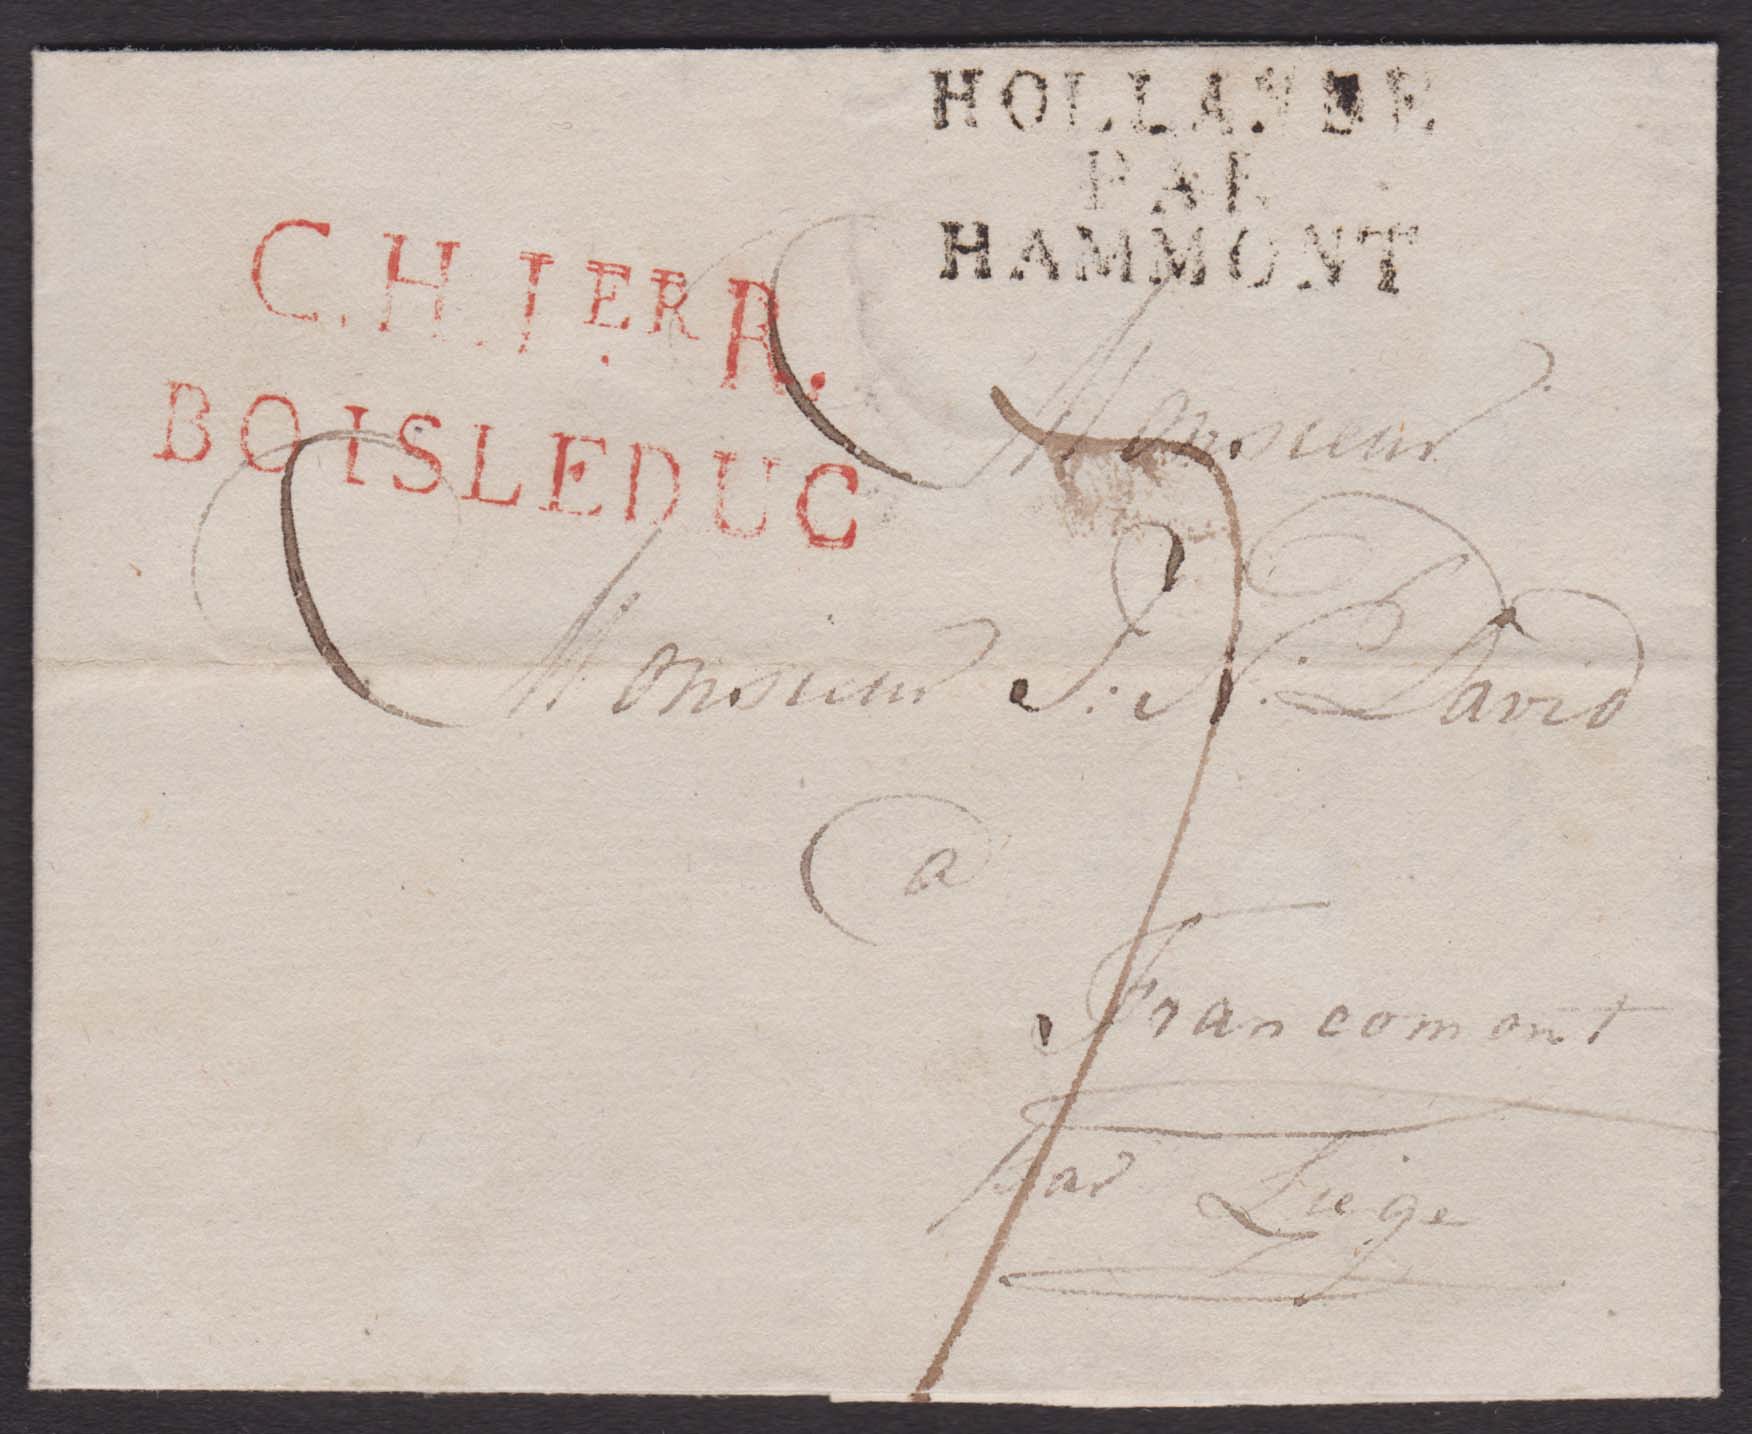 HOLLANDE
PAR
HAMMONT
C.H.IER R.
BOISLEDUC
Monsieur
Monsieur J: N: David
a
Francomont
par Liege
7